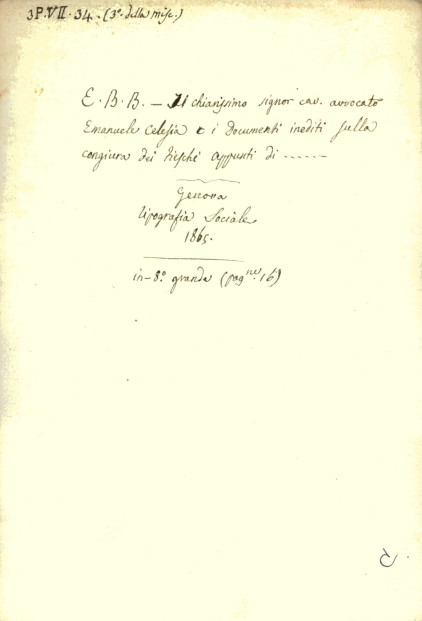 3P.VII.34.(3º della misc.)
E. B. B. — Il chiarissimo signor cav. avvocato
Emanuele Celesia e i Documenti inediti sulla
congiura dei Fieschi appunti di ......
Genova
tipografia Sociale
1865.
in-8º grande (pagne. 16)